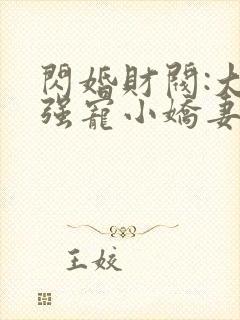 閃婚財閥:大
强寵小嬌妻
王姣